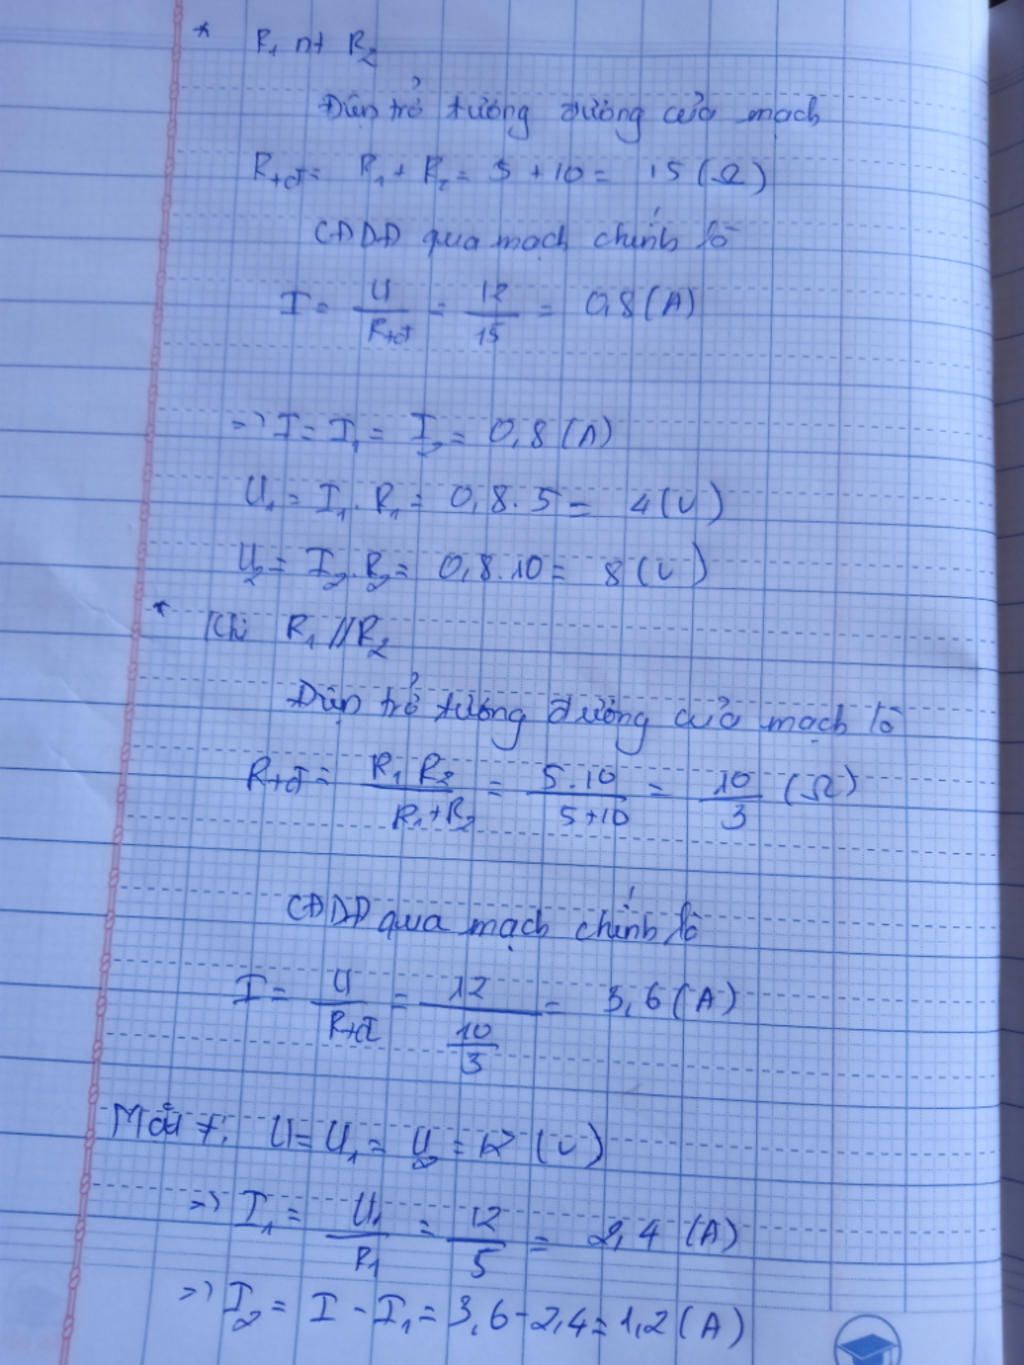 * R₁ nt R₂
Điện trở tương đương của mạch
Rtđ = R₁ + R₂ = 5 + 10 = 15 (Ω)
CĐDĐ qua mạch chính là
I = U/Rtđ = 12/15 = 0,8 (A)
=> I = I₁ = I₂ = 0,8 (A)
U₁ = I₁ . R₁ = 0,8 . 5 = 4 (V)
U₂ = I₂ . R₂ = 0,8 . 10 = 8 (V)
* Khi R₁ // R₂
Điện trở tương đương của mạch là
Rtđ = R₁ R₂/R₁+R₂ = 5 . 10/5+10 = 10/3 (Ω)
CĐDĐ qua mạch chính là
I = U/Rtđ = 12/(10/3) = 3,6 (A)
U = U₁ = U₂ = 12 (V)
=> I₁ = U₁/R₁ = 12/5 = 2,4 (A)
=> I₂ = I - I₁ = 3,6 - 2,4 = 1,2 (A)